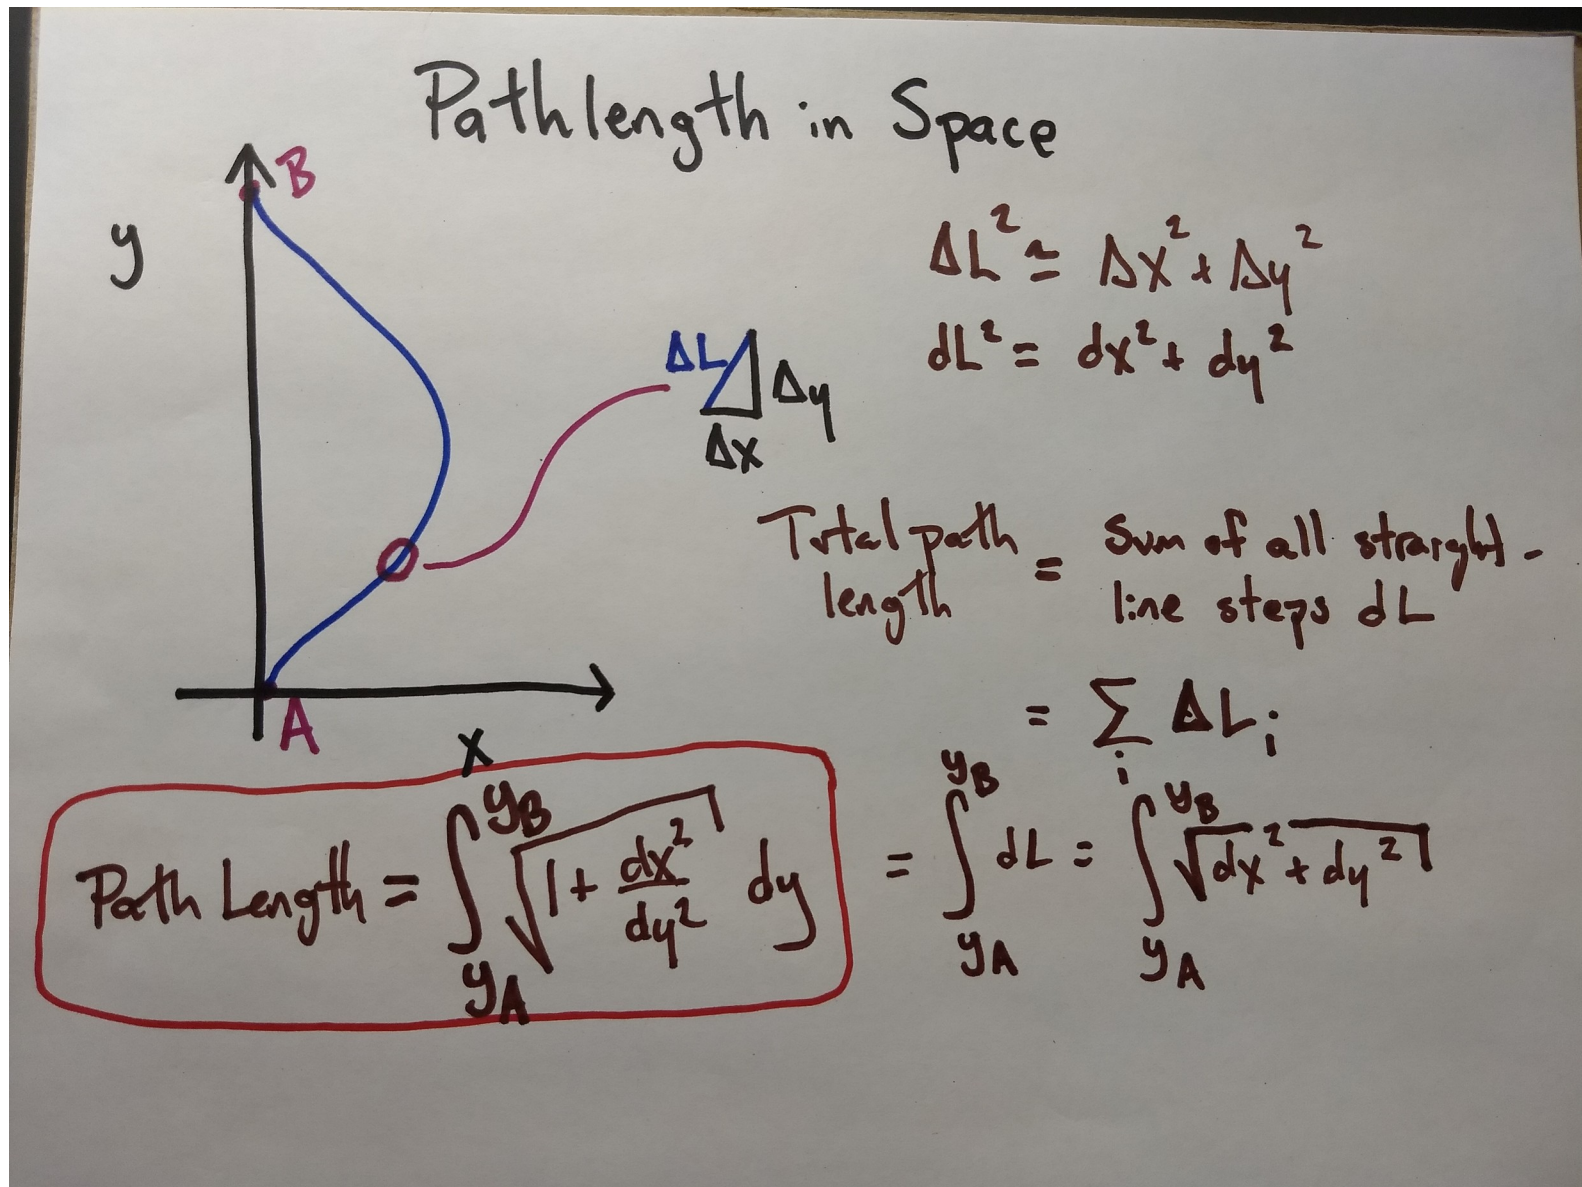 Path length in Space
B
y
ΔL² ≅ Δx² + Δy²
dL² = dx² + dy²
ΔL
Δy
Δx
Total path length = Sum of all straight-
line steps dL
A
x
= ∑ᵢ ΔLᵢ
Path Length = ∫_{yA}^{yB} √(1 + dx²/dy²) dy
= ∫_{yA}^{yB} dL = ∫_{yA}^{yB} √(dx² + dy²)